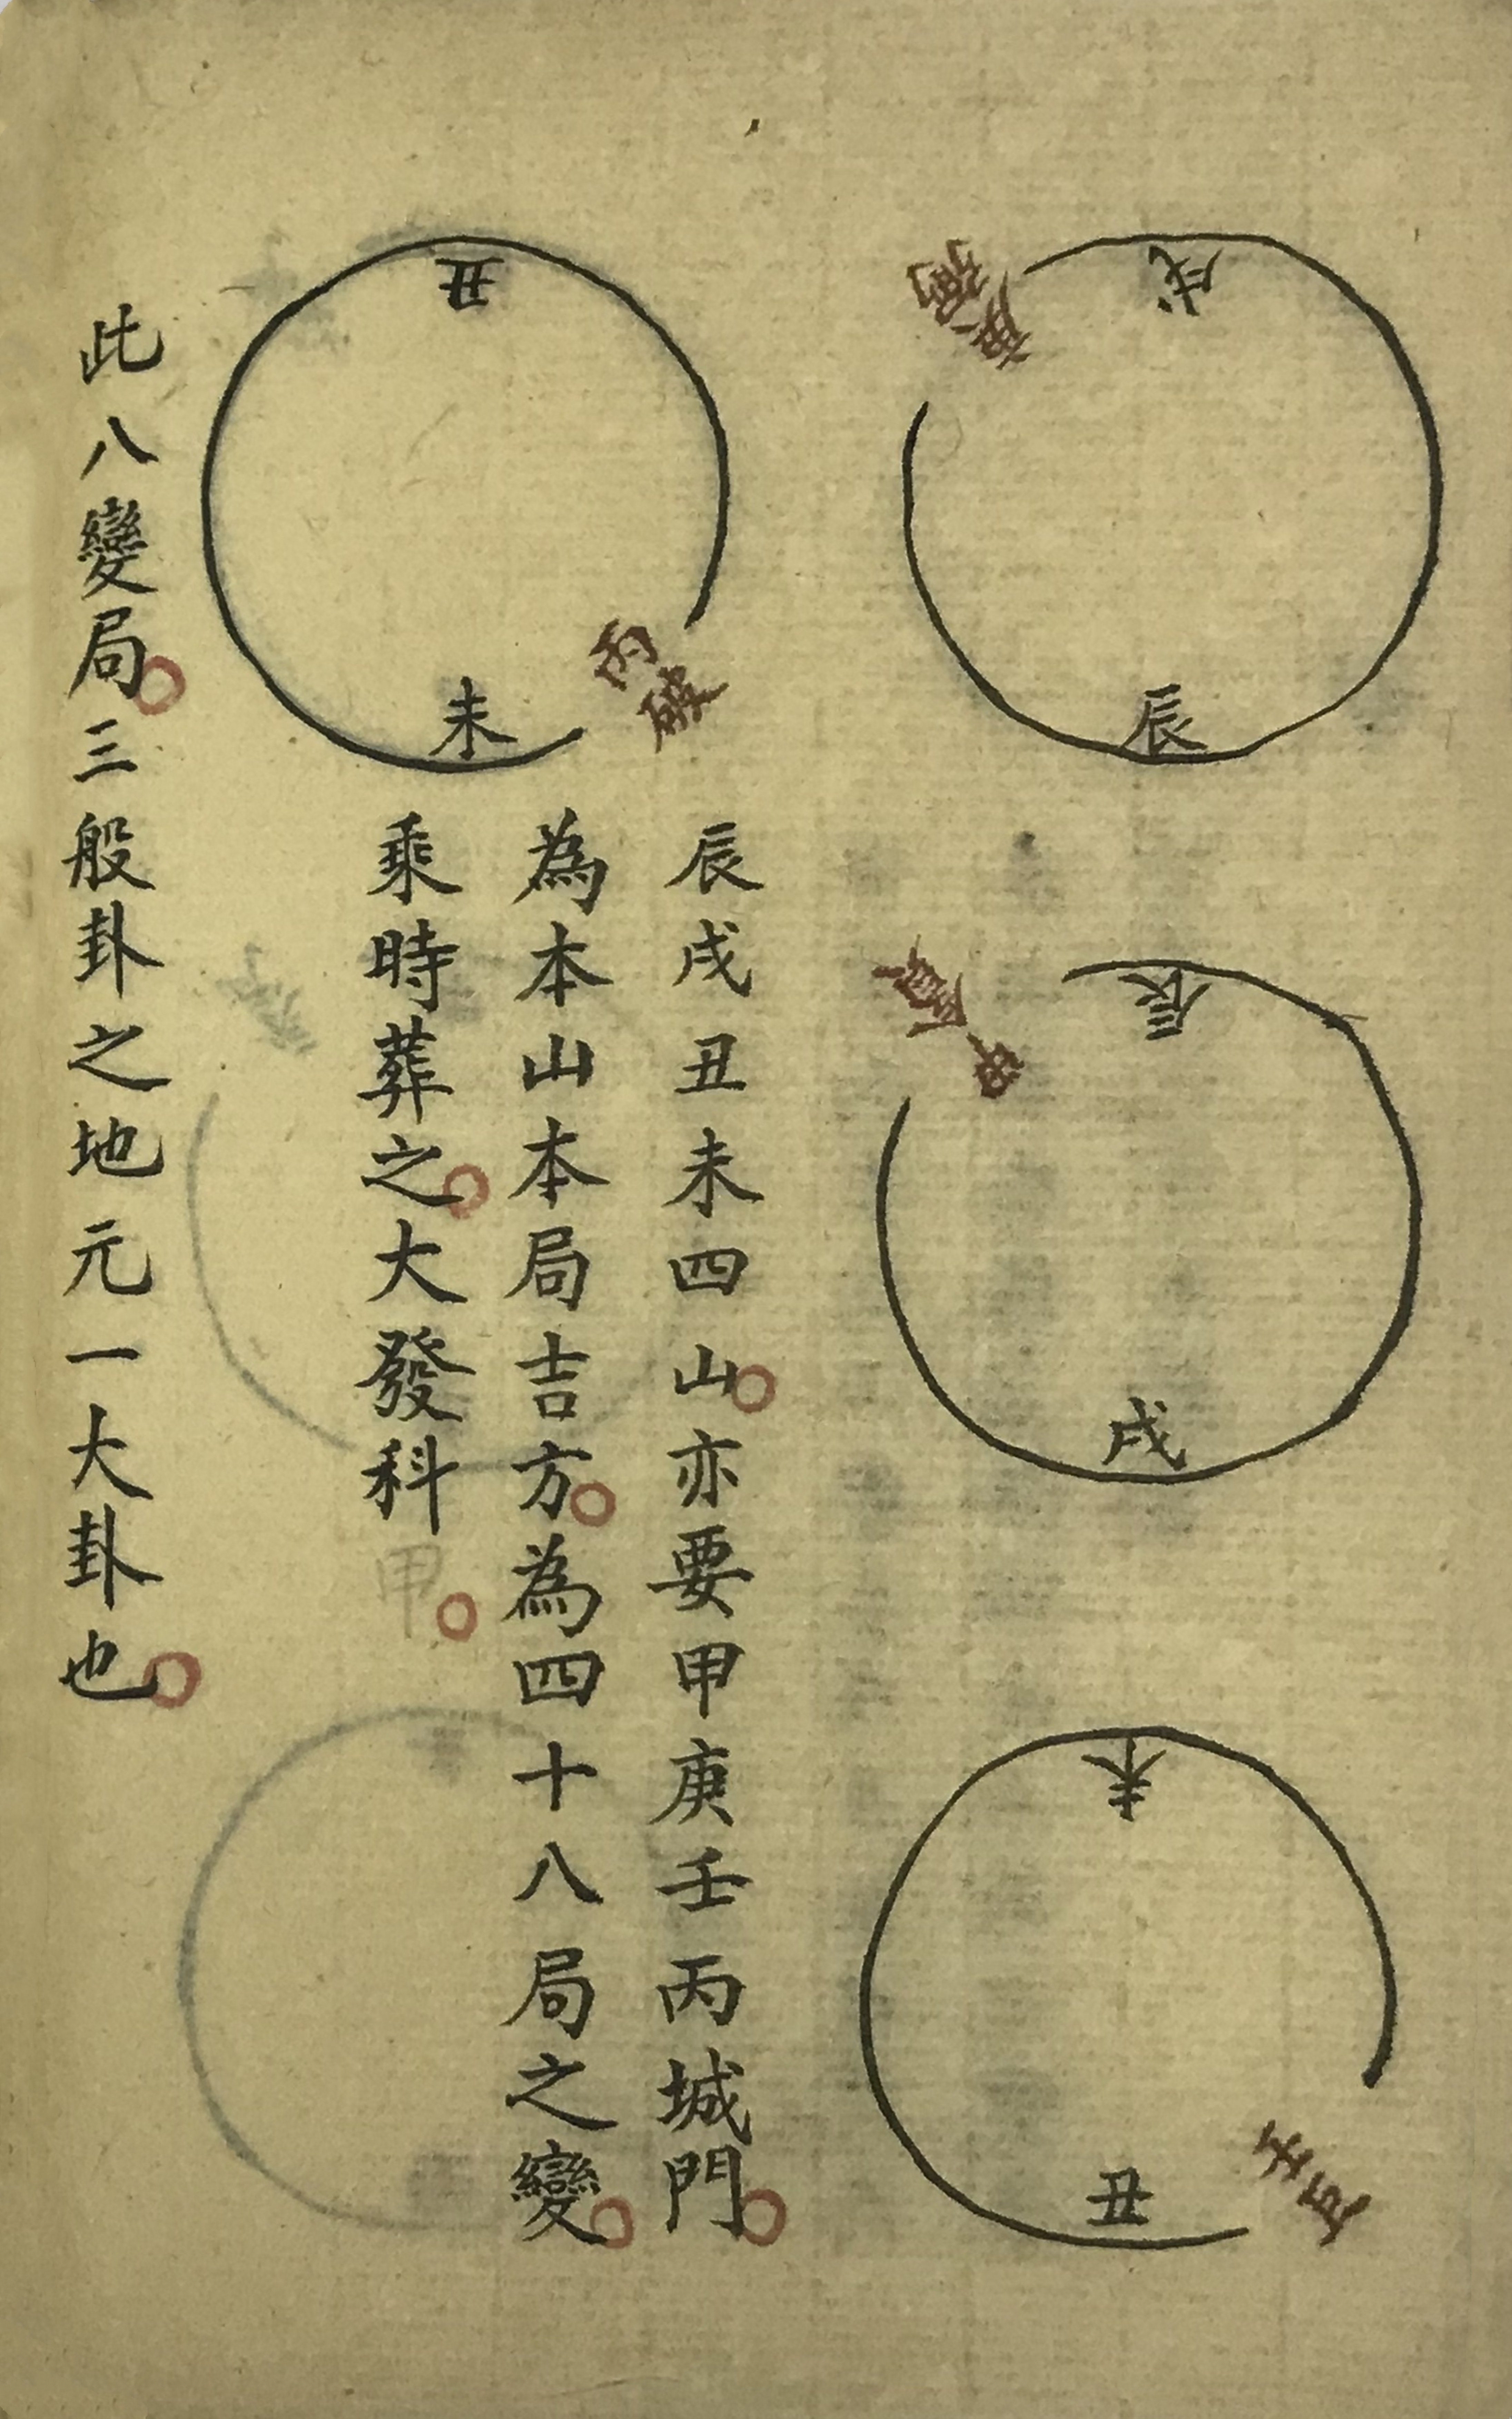 戌
庚弼
辰
辰
甲貪
戌
未
丑
壬
丑
未
丙破
辰戌丑未四山。亦要甲庚壬丙城門。
為本山本局吉方。為四十八局之變。
乘時葬之。大發科甲。
此八變局。三般卦之地元一大卦也。